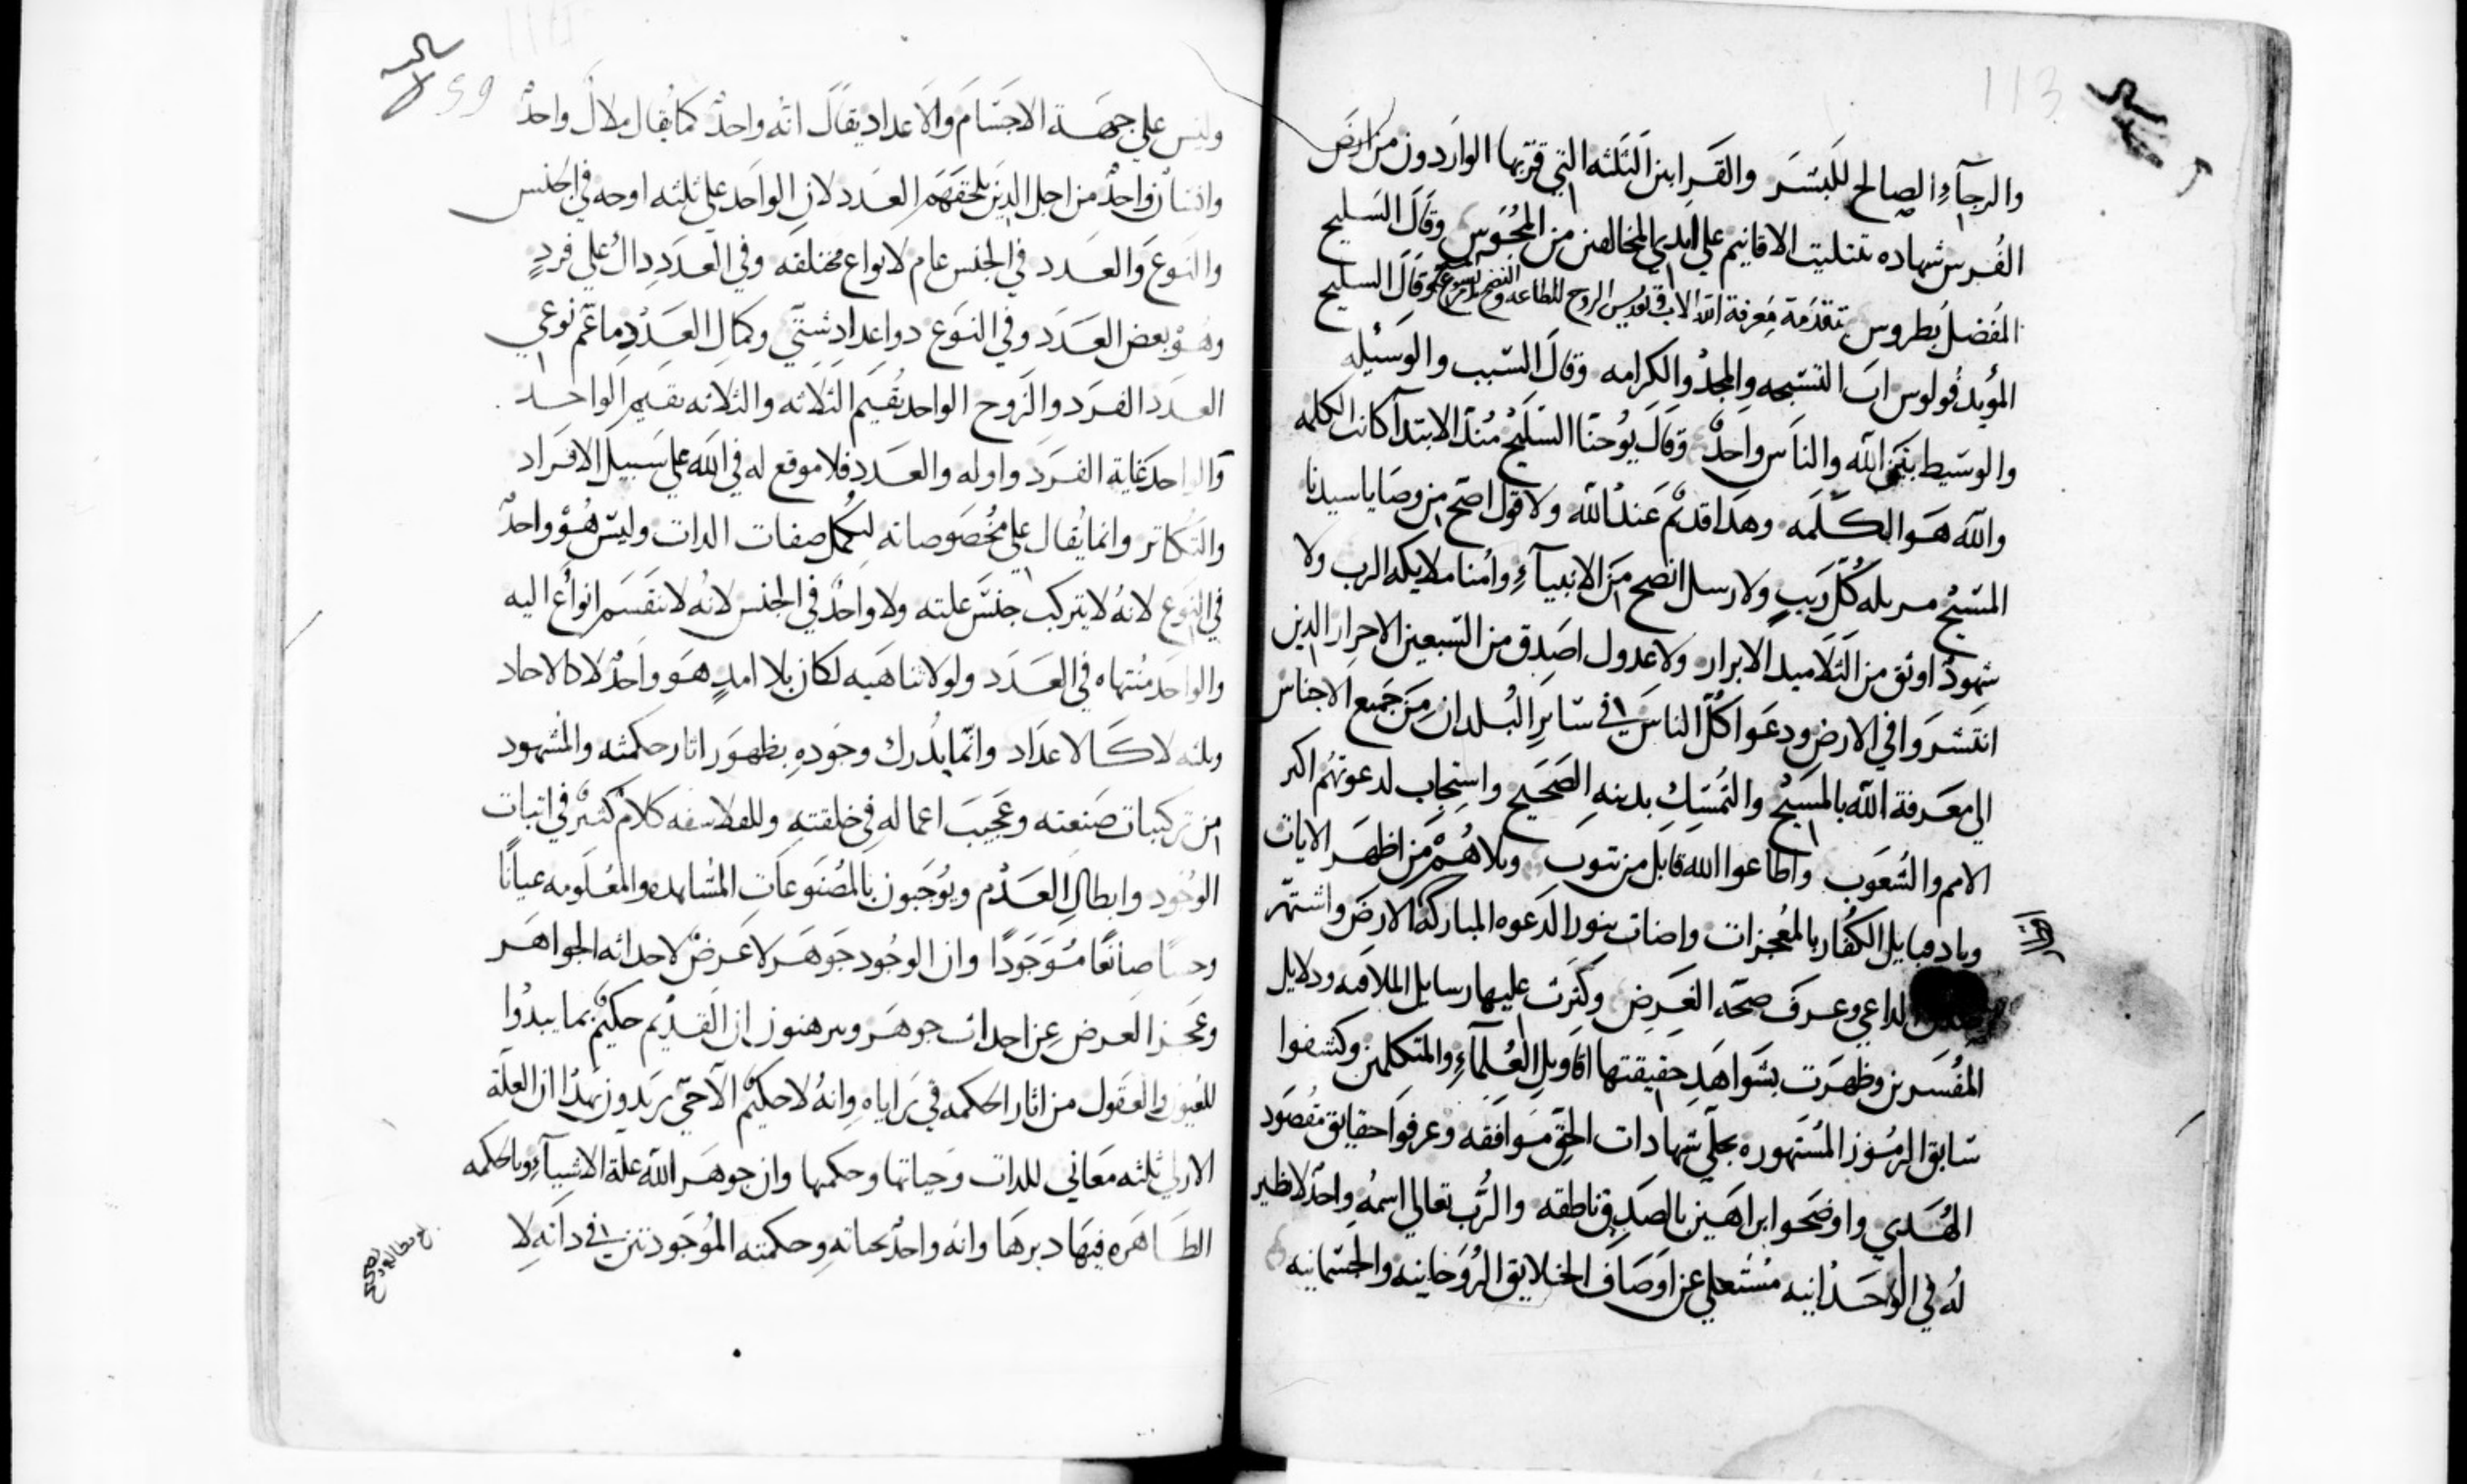 113
والرجآءِ الصالح للبشر والقرابين الثلثه التي قربها الواردون من ارض
الفُرس شهاده بتثليت الاقانيم علي ايدي المخالفين من المجوس وقال السليح
المفضل بطروس بتقدمة معرفة الله الاب في تقديس الروح للطاعه والنضح وقال السليح
المؤيد فولوس ان التسبحه والمجد والكرامه وقال السبب والوسيله
والوسيط بين الله والناس واحدٌ وقال يوحنا السليح منذ الابتدآ كانت الكلمه
والله هو الكلمه وهذا قديم عند الله ولا قول اصح من وصايا سيدنا
المسيح كل ريبٍ ولا رسل انصح من الانبيآءِ وامنا ملايكه الرب ولا
شهودٌ اوثق من التلاميد الابرار ولا عدول اصدق من السبعين الاحرار الدين
انتشروا في الارض ودعوا كل الناس في ساير البلدان من جميع الاجناس
الي معرفة الله بالمسيح والتمسك بدينهِ الصحيح واستجاب لدعوتهم اكبر
الامم والشعوب واطاعوا الله قابل من يتوب وتلاهم من اظهر الايات
وباد قبايل الكفار بالمعجزات واضات بنور الدعوه المباركه الارض واشتهر
الداعي وعرف صحة الغرض وكثرت عليها رسايل الملافنه ودلايل
المفسرين وظهرت بشواهد حقيقتها اقاويل العُلمآءِ والمتكلمين وكشفوا
سابق الرموز المشهوره بجلي شهادات الحق موافقه وعرفوا حقايق مقصود
الهُدي واوضحوا براهين بالصدق ناطقه والرب تعالي اسمهُ واحدٌ لا نظير
لهُ في الوحدانيه مستعلي عن اوصاف الخلايق الروحانيه والجسمانيه
59
وليس علي جهة الاجسام والاعداد يقال انه واحدٌ كما يقال ملاك واحدٌ
وانسان واحدٌ من اجل الدين يلحقهم العدد لان الواحد علي ثلثه اوجه في الجنس
والنوع والعدد في الجنس عام لانواع مختلفه وفي العدد دالٌ علي فردٍ
وهو بعض العدد وفي النوع دو اعداد شتي وكمال العدد ما عم نوعي
العدد الفرد والزوج الواحد يقيم الثلاثه والثلاثه تقيم الواحد
والواحد غاية الفرد واوله والعدد فلا موقع له في الله علي سبيل الافراد
والتكاتر وانما يقال علي مخصوصانه لتكمل صفات الدات وليس هو واحدٌ
في النوع لانهُ لا يتركب جنس علته ولا واحدٌ في الجنس لانهُ لا تنقسم انواع اليه
والواحد منتهاه في العدد ولولا تناهيه لكان بلا امدٍ هو واحدٌ لا كالاحاد
وثلثه لا كالاعداد وانما يدرك وجوده بظهور اثار حكمته والمشهود
من تركيبات صنعته وعجيب اعماله في خلقتهِ وللفلاسفه كلامٌ كثيرٌ في اثبات
الوجود وابطال العدم ويوجبون بالمصنوعات المشاهده والمعلومه عيانًا
وحسًا صانعًا موجودًا وان الوجود جوهر لا عرضٌ لاحداثه الجواهر
وعجز العرض عن احداث جوهر ويبرهنون ان القديم حكيمٌ بما يبدُوا
للعيون والعقول من اثار الحكمه في براياه وانهُ لا حكيم الا حيّ يريدون بهذا ان العلة
الازلي ثلثه معاني للدات وحياتها وحكمتها وان جوهر الله علة الاشيآءِ وبالحكمه
الظاهره فيها دبرها وانه واحدٌ بحياته وحكمته الموجودتين في داته لا